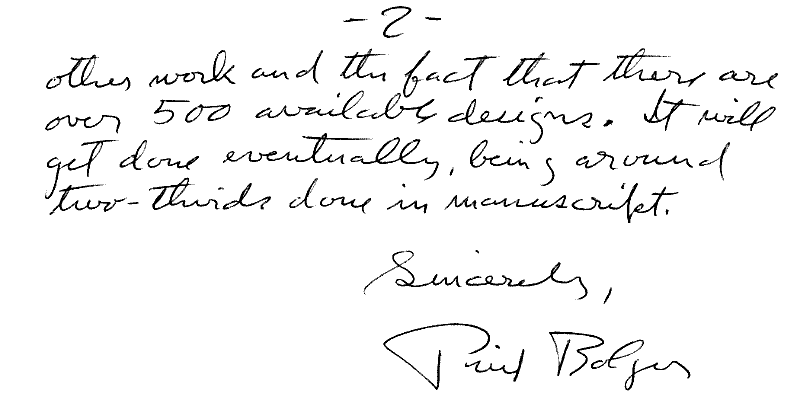 -2-
other work and the fact that there are
over 500 available designs. It will
get done eventually, being around
two-thirds done in manuscript.
Sincerely,
Phil Bolger